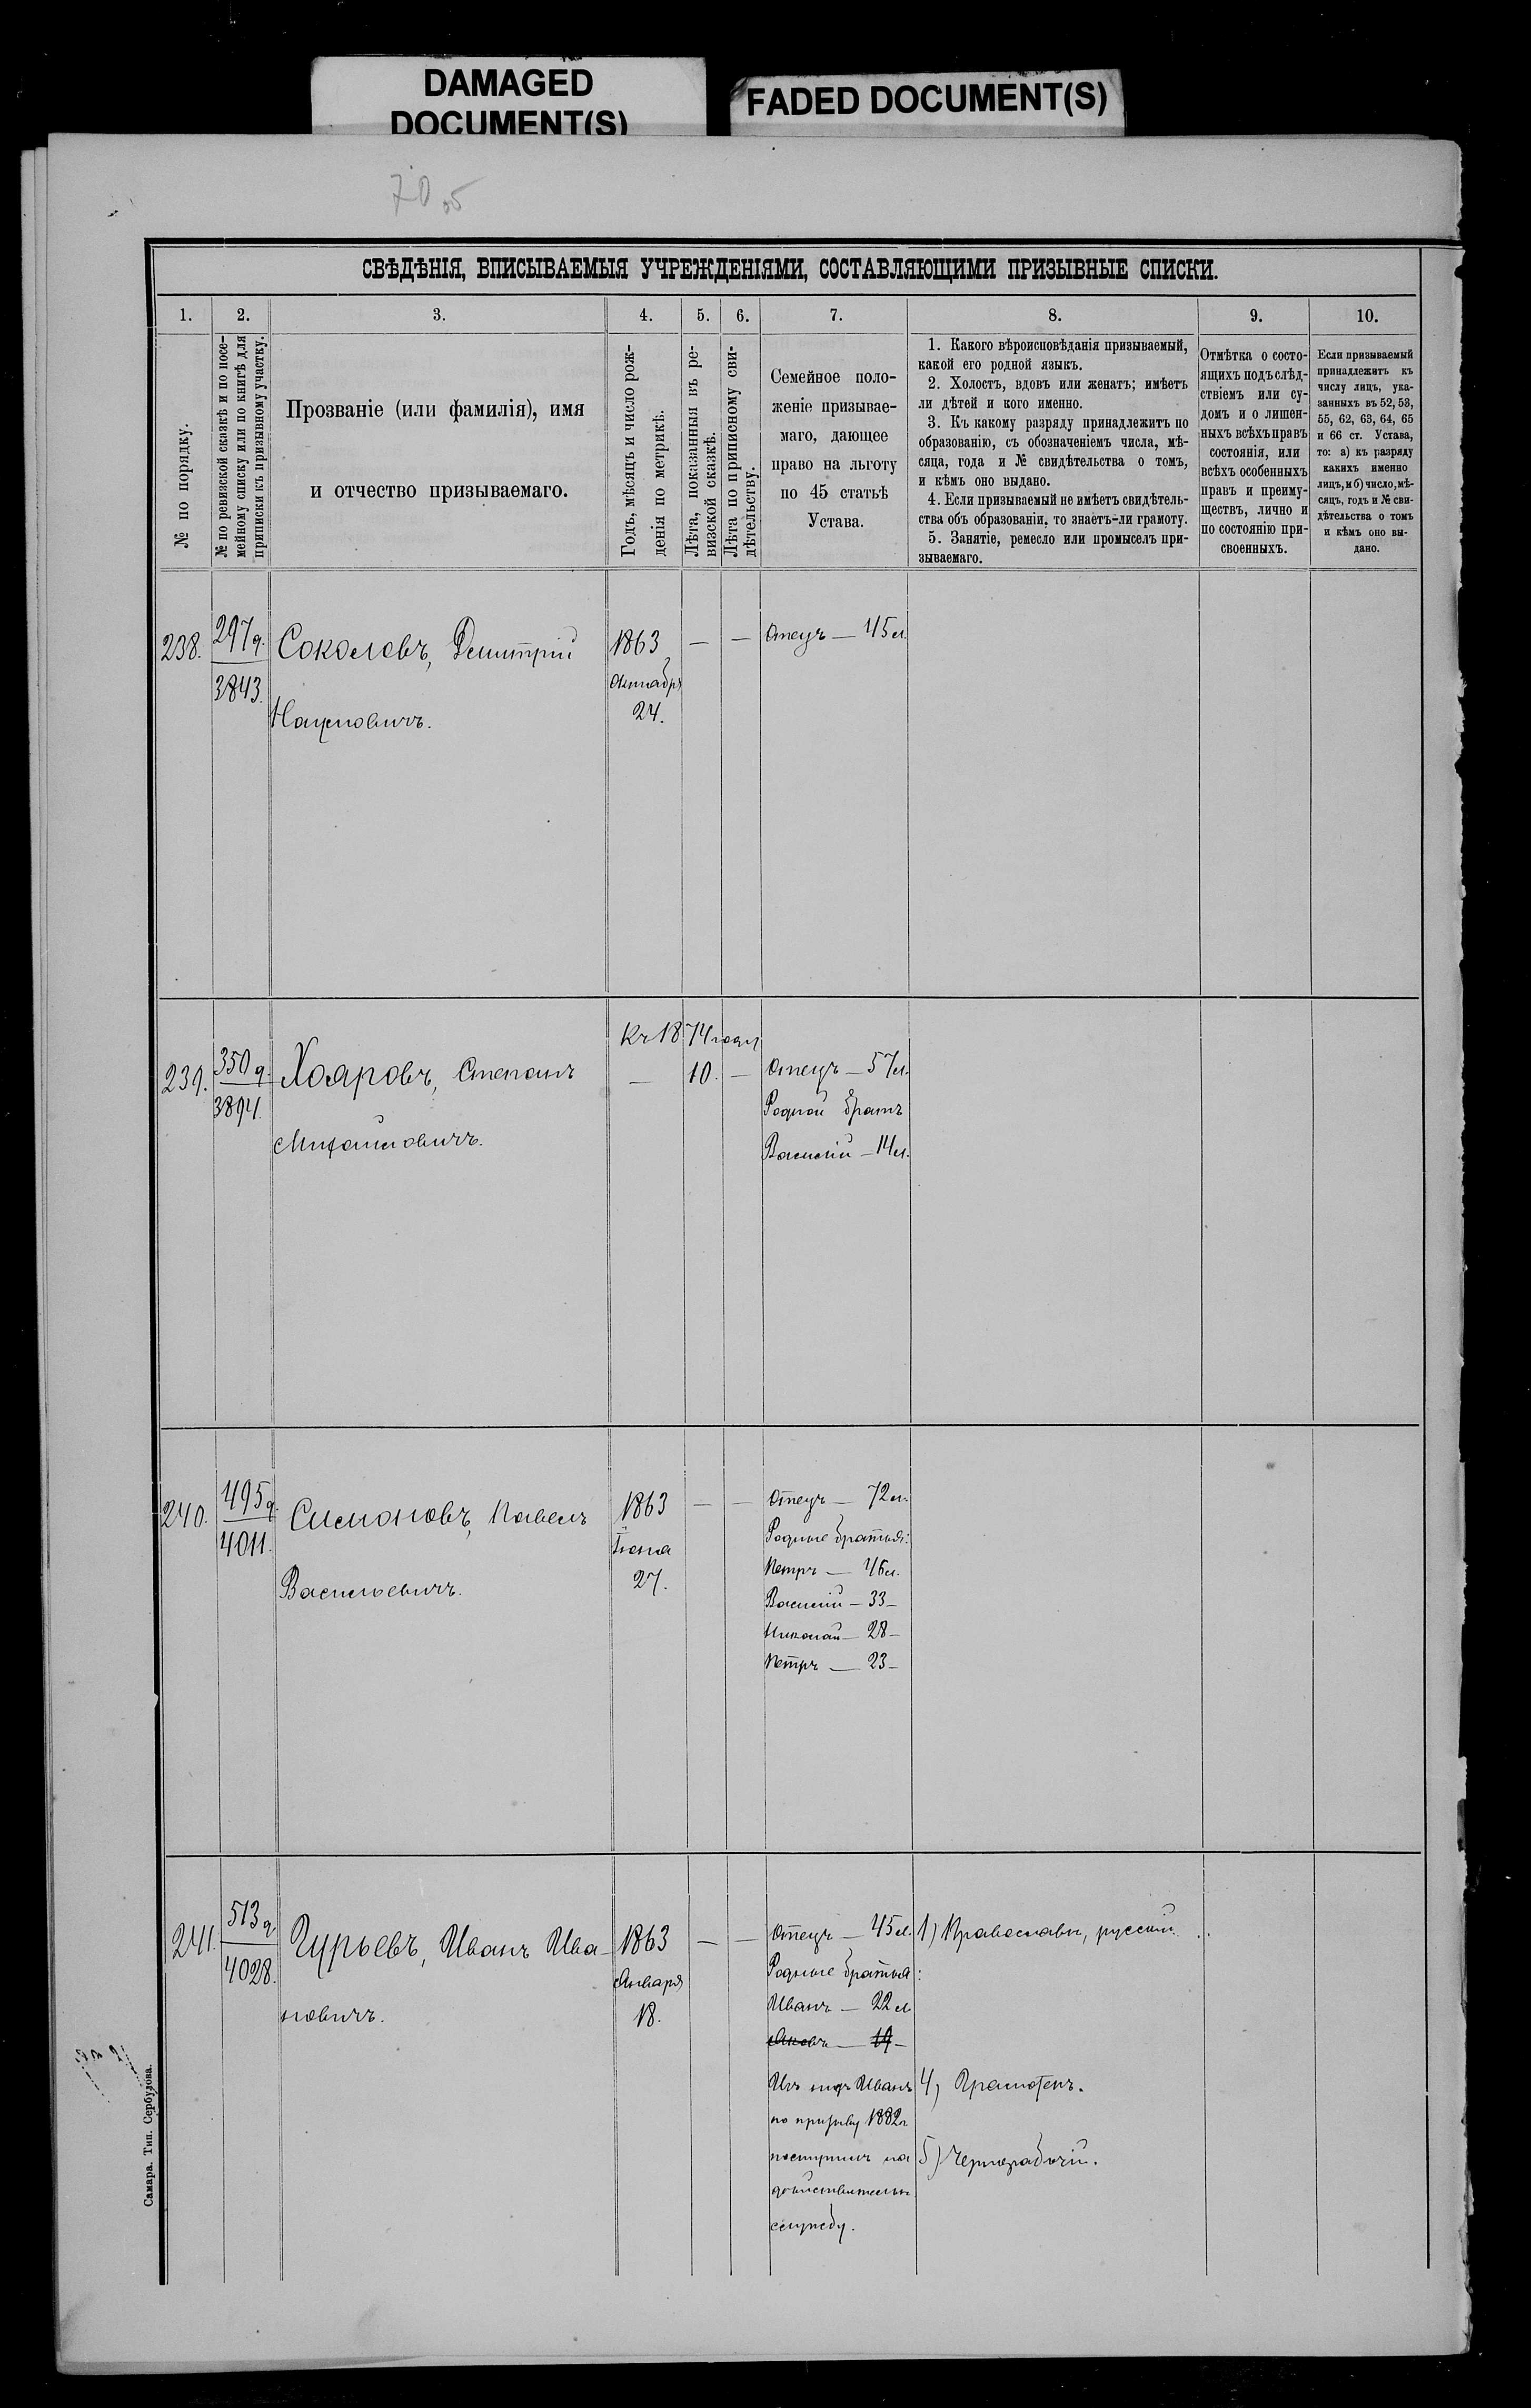 DAMAGED
DOCUMENT(S)
FADED DOCUMENT(S)
СВѢДѢНІЯ, ВПИСЫВАЕМЫЯ УЧРЕЖДЕНІЯМИ, СОСТАВЛЯЮЩИМИ ПРИЗЫВНЫЕ СПИСКИ.
1. 2. 3. 4. 5. 6. 7. 8. 9. 10.
№ по порядку.
№ по ревизской сказкѣ и по посе-
мейному списку или по книгѣ для
приписки къ призывному участку.
Прозваніе (или фамилія), имя
и отчество призываемаго.
Годъ, мѣсяцъ и число рож-
денія по метрикѣ.
Лѣта, показанныя въ ре-
визской сказкѣ.
Лѣта по приписному сви-
дѣтельству.
Семейное поло-
женіе призывае-
маго, дающее
право на льготу
по 45 статьѣ
Устава.
1. Какого вѣроисповѣданія призываемый,
какой его родной языкъ.
2. Холостъ, вдовъ или женатъ; имѣетъ
ли дѣтей и кого именно.
3. Къ какому разряду принадлежитъ по
образованію, съ обозначеніемъ числа, мѣ-
сяца, года и № свидѣтельства о томъ,
и кѣмъ оно выдано.
4. Если призываемый не имѣетъ свидѣтель-
ства объ образованіи, то знаетъ-ли грамоту.
5. Занятіе, ремесло или промыселъ при-
зываемаго.
Отмѣтка о состо-
ящихъ подъ слѣд-
ствіемъ или су-
домъ и о лишен-
ныхъ всѣхъ правъ
состоянія, или
всѣхъ особенныхъ
правъ и преиму-
ществъ, лично и
по состоянію при-
своенныхъ.
Если призываемый
принадлежитъ къ
числу лицъ, ука-
занныхъ въ 52, 53,
55, 62, 63, 64, 65
и 66 ст. Устава,
то: а) къ разряду
какихъ именно
лицъ, и б) число, мѣ-
сяцъ, годъ и № сви-
дѣтельства о томъ
и кѣмъ оно вы-
дано.
238.
297 д.
3843.
Соколовъ, Димитрій
Наумовичъ.
1863
Октября
24.
— —
Отецъ — 45 л.
239.
350 д.
3894.
Хояровъ, Степанъ
Михайловичъ.
Къ 1874 году
— 10. —
Отецъ — 57 л.
Родной братъ
Василій — 14 л.
240.
495 д.
4011.
Симоновъ, Павелъ
Васильевичъ.
1863
Іюня
27.
— —
Отецъ — 72 л.
Родные братья:
Петръ — 46 л.
Василій — 33 —
Николай — 28 —
Петръ — 23 —
241.
513 д.
4028.
Гурьевъ, Иванъ Ива-
новичъ.
1863
Января
18.
— —
Отецъ — 45 л.
Родные братья:
Иванъ — 22 л.
Яковъ — 19 —
Изъ нихъ Иванъ
по призыву 1882 г.
поступилъ на
дѣйствительн.
службу.
1) Православн, русскій.
4) Грамотенъ.
5) Чернорабочій.
Самара. Тип. Сербулова.